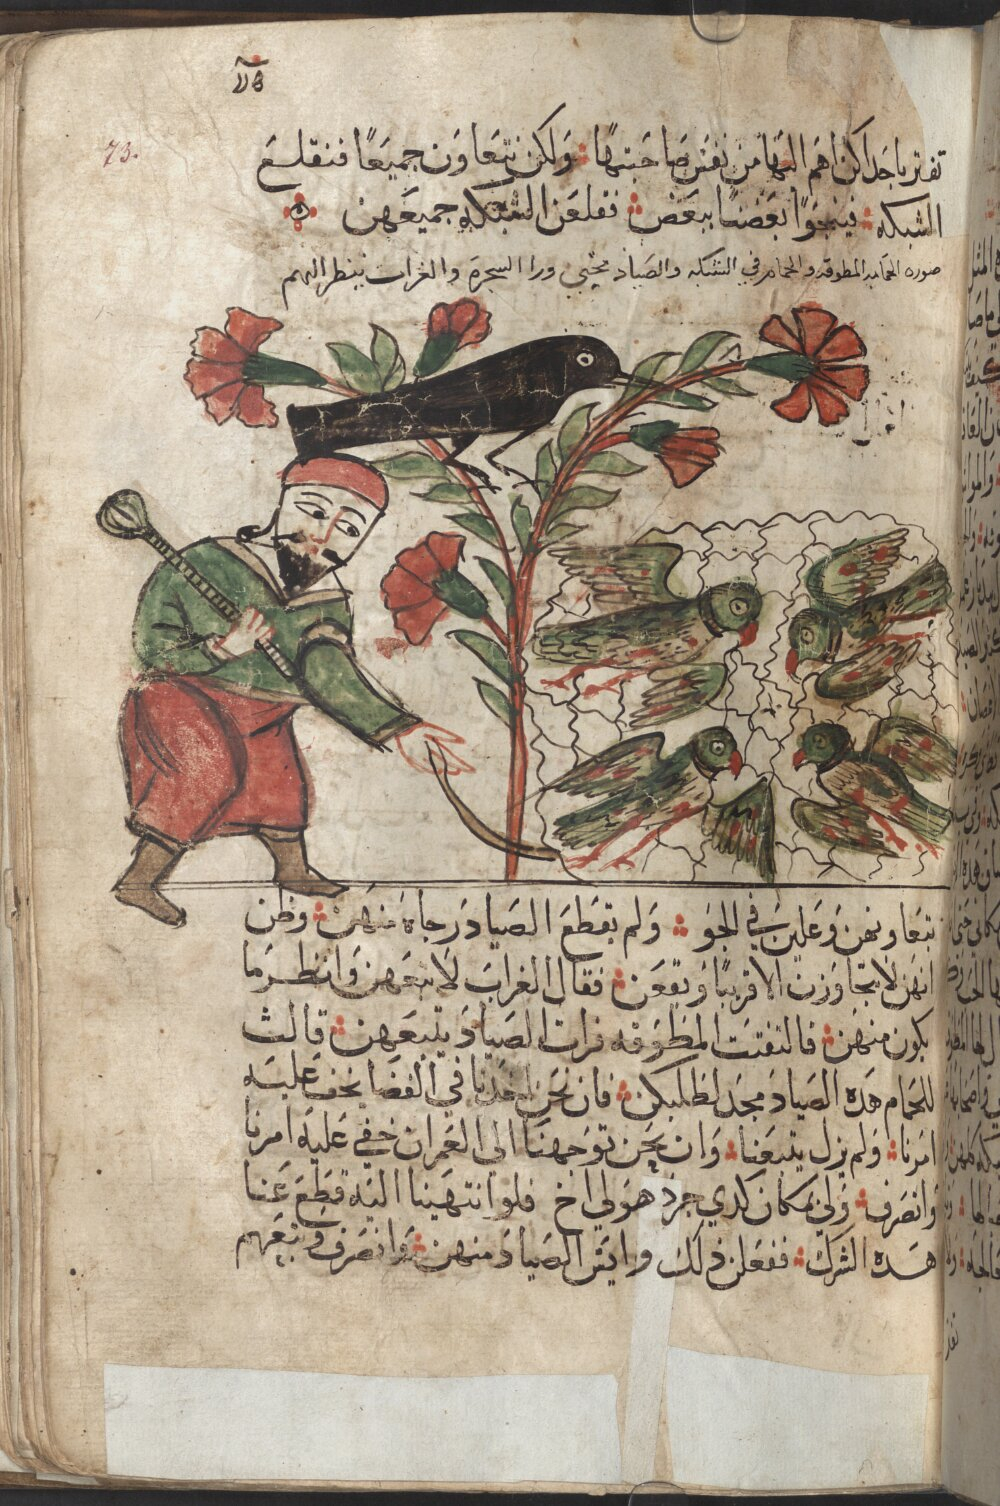 ٧٣
73.
نفس صاحبتها ولكن نتعاون جميعًا فنقلع
الشبكه فينجوا بعضنا ببعض فقلعن الشبكه جميعهن
صوره الحمامه المطوقه والحمام في الشبكه والصياد مختبي ورا السجره والغراب ينظر اليهم
بتعاونهن وعلين في الجو ولم يقطع الصياد رجاه منهن وظن
انهن لا يتجاوزن الا قريبًا ويقعن فقال الغراب لاتبعهن وانظر ما
يكون منهن فالتفتت المطوقه فرات الصياد يتبعهن قالت
للحمام هذه الصياد مجد لطلبكن فان نحن اخذنا في الفضا لم يخف عليه
امرنا ولم يزل يتبعنا وان نحن توجهنا الى العمران خفي عليه امرنا
وانصرف ولي بمكان كدي جرد هو لي اخ فلو انتهينا اليه قطع عنا
هده الشرك ففعلن ذلك وايس الصياد منهن وانصرف وتبعهم